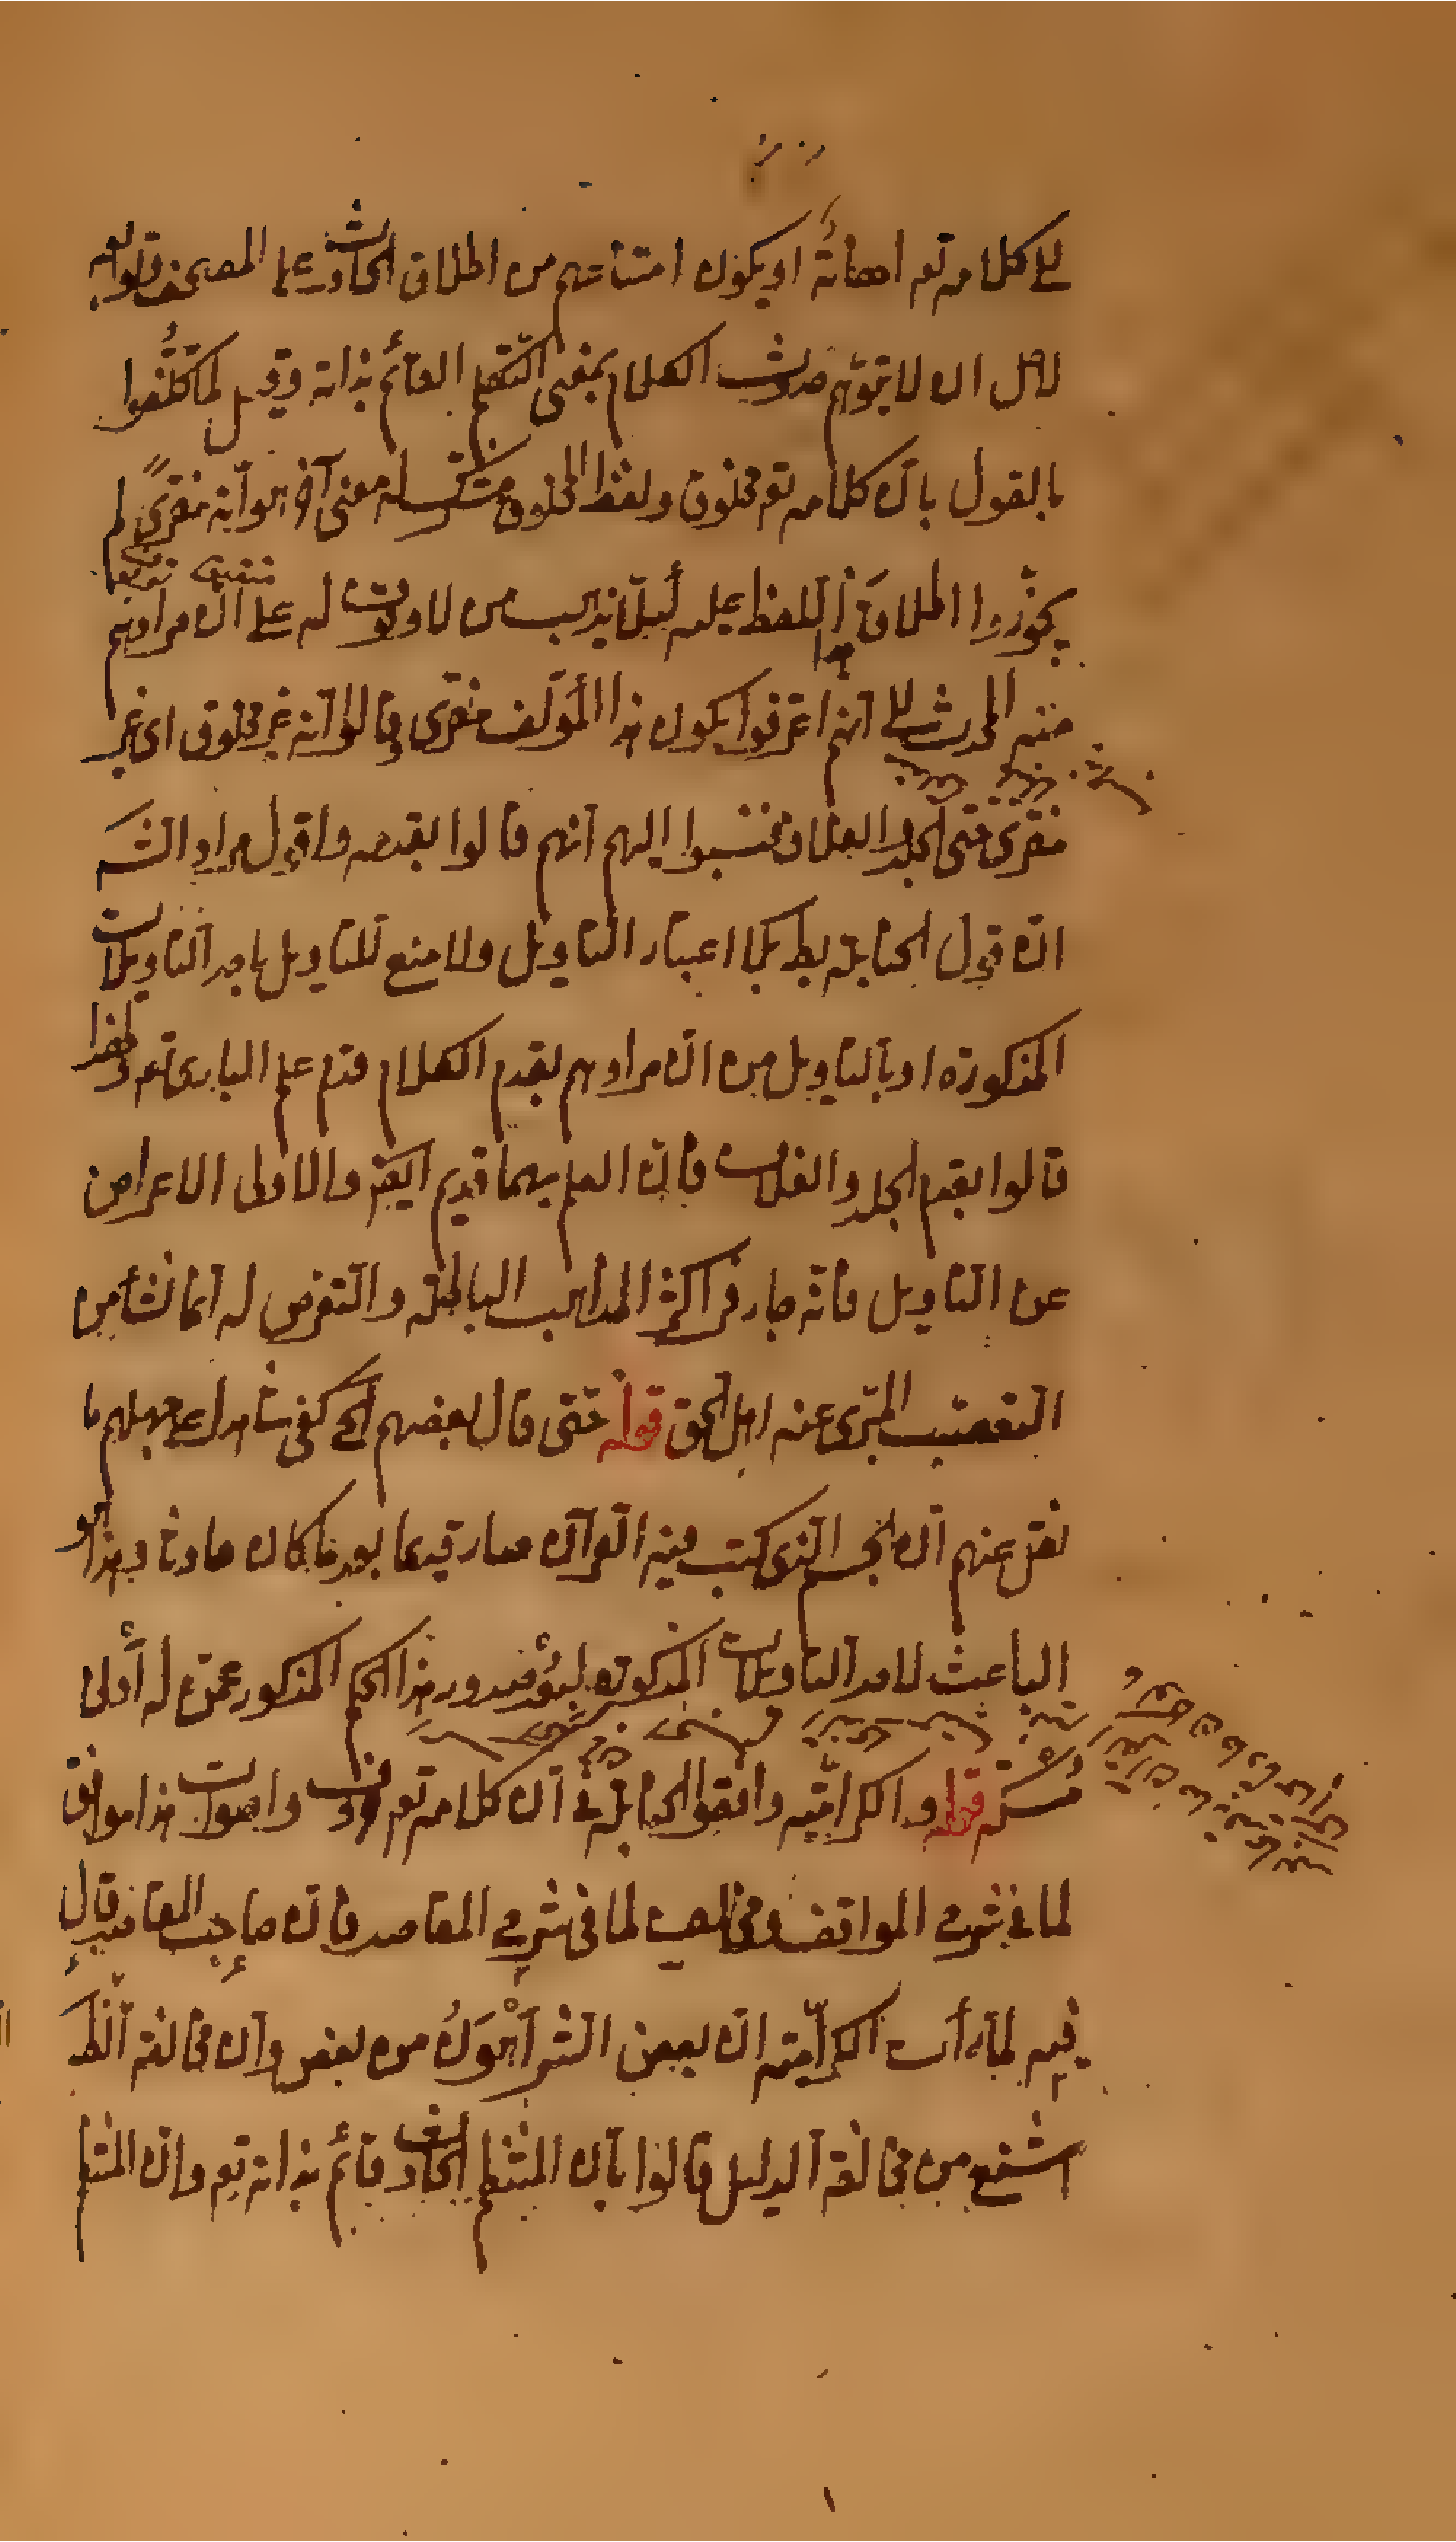 كلامه تع اهانة او يكون امتناعهم من اطلاق الحادث على المصحف وقوله
لاجل ان لا يتوهم حدوث الكلام بمعنى التكلم القائم بذاته وقيل لما كلّفوا
بالقول بان كلامه تع مخلوق ولفظ المخلوق مشترك له معنى آخر هو انه مفترى لم
يجوّزوا اطلاق هذا اللفظ عليه لئلا يذهب من لا وقوف له على ان مرادهم
منه المحدث الى انهم اعترفوا بكون هذا المؤلف مفترى وقالوا انه غير مخلوق اى غير
مفترى حتى الجلد والغلاف فنسبوا اليهم انهم قالوا بقدمه واقول مراد الش
ان قول الحنابلة بط بلا اعتبار التاويل ولا منع للتاويل باحد التاويلات
المذكورة او بالتاويل من ان مرادهم بقدم الكلام قدم علم البارى تع ولهذا
قالوا بقدم الجلد والغلاف فان العلم بهما قديم ايضا والاولى الاعراض
عن التاويل فانه جار فى اكثر المذاهب الباطلة والتعرض له انما نشأ من
التعصب المتبرى عنه اهل الحق قوله حتى قال بعضهم الخ كفى شاهدا على جهلهم ما
نقل عنهم ان الجسم الذى كتب فيه القرآن صار قديما بعد ما كان حادثا وهذا هو
الباعث لاحد التاويلات المذكورة ليؤ صدور هذا الحكم المذكور عمن له ادنى
مسكة قوله والكرامية وافقوا الحنابلة فى ان كلامه تع حروف واصوات هذا موافق
لما فى شرح المواقف ومخالف لما فى شرح المقاصد فان صاحب المقاصد قال
فيه لما رأت الكرامية ان بعض الشر اهون من بعض وان مخالفة الضر
اشنع من مخالفة الدليل قالوا بان المنتظم الحادث قائم بذاته تع وان المنتظم